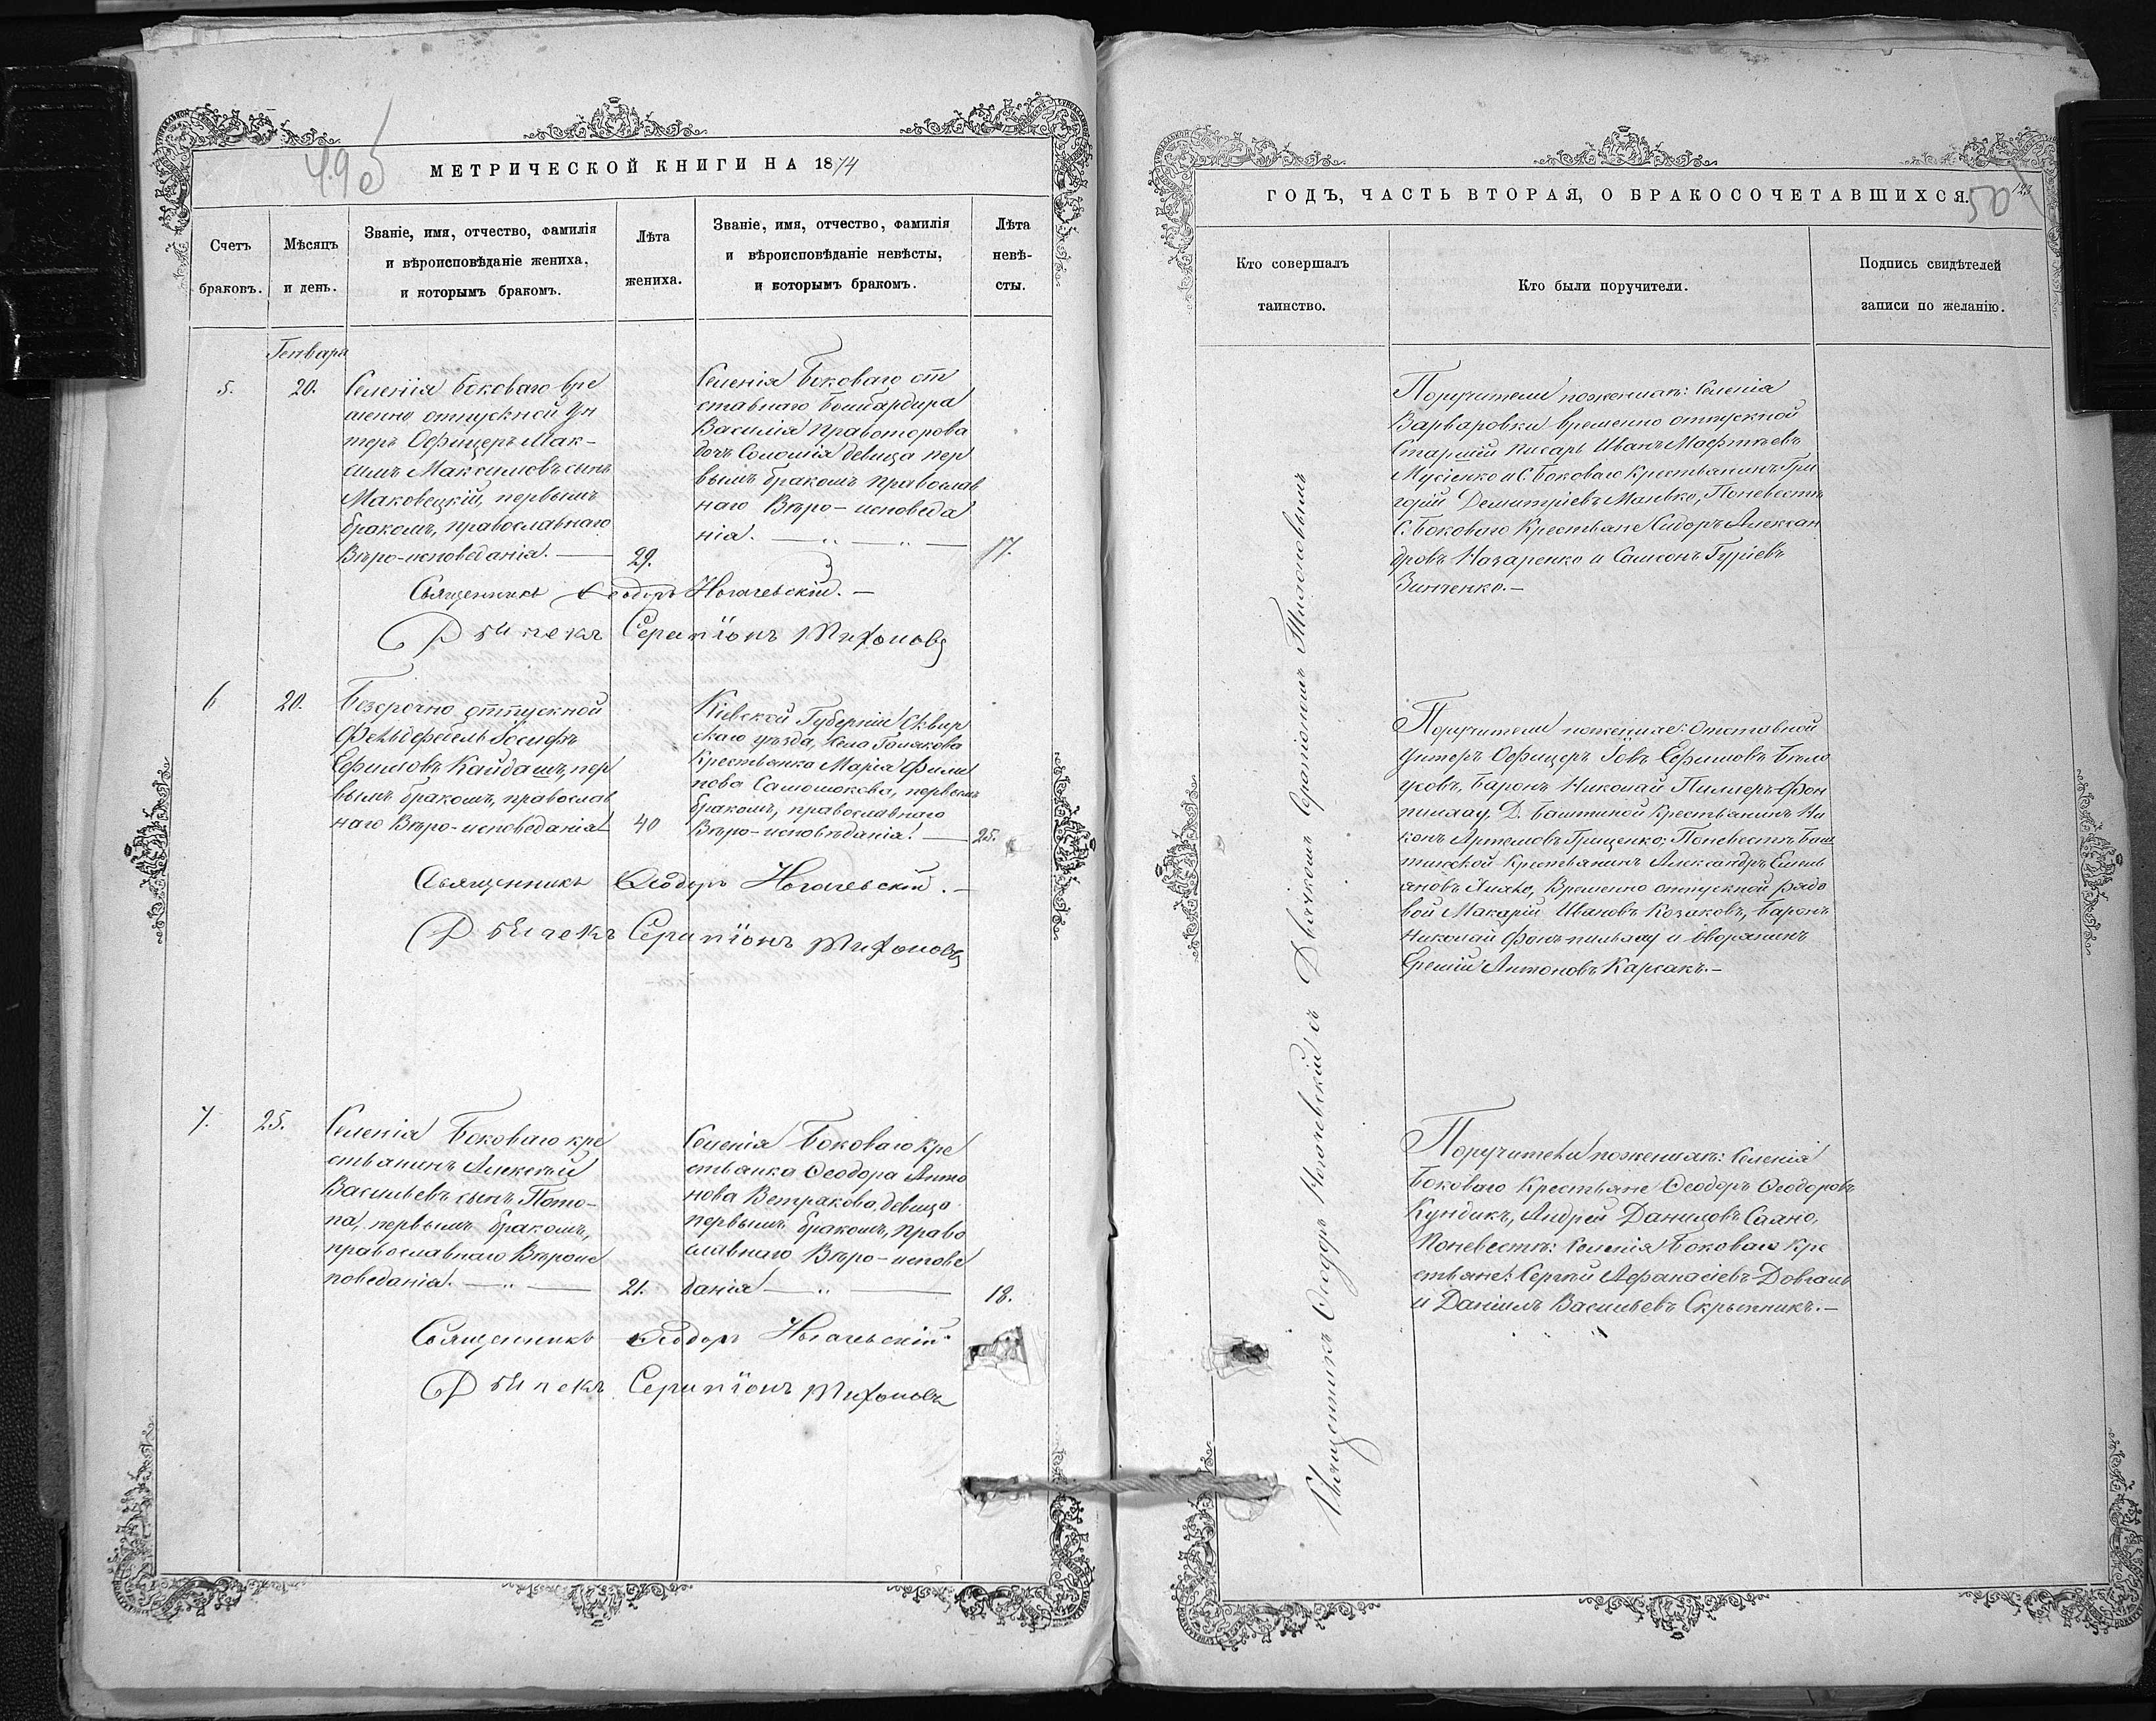 МЕТРИЧЕСКОЙ КНИГИ НА 1874
Счетъ
браковъ.
Мѣсяцъ
и день.
Званіе, имя, отчество, фамилія
и вѣроисповѣданіе жениха,
и которымъ бракомъ.
Лѣта
жениха.
Званіе, имя, отчество, фамилія
и вѣроисповѣданіе невѣсты,
и которымъ бракомъ.
Лѣта
невѣ-
сты.
Генваря
5.
20.
Селенія Боковаго вре
менно отпускной Ун
теръ Офицеръ Мак-
симъ Максимовъ сынъ
Маковецкій, первымъ
бракомъ, православнаго
Вѣро-исповеданія.
29.
Селенія Боковаго от
ставнаго Бомбардира
Василія Правоторова
дочь Соломія девица пер
вымъ бракомъ православ
наго Вѣро-исповеда
нія.
17.
Священникъ Ѳеодоръ Ногачевскій.
Дьячекъ Серапіонъ Тихоновъ
6
20.
Безсрочно отпускной
Фельдфебель Іосифъ
Ефимовъ Кайдашъ, пер
вымъ бракомъ, православ
наго Вѣро-исповеданія
40
Кіевской Губерніи Сквир
скаго уѣзда, села
Крестьянка Марія Филип
пова первымъ
бракомъ, православнаго
Вѣро-исповѣданія.
25.
Священникъ Ѳеодоръ Ногачевскій.
Дьячекъ Серапіонъ Тихоновъ
7.
25.
Селенія Боковаго кре
стьянинъ Алексѣй
Васильевъ сынъ Пото-
па, первымъ бракомъ,
православнаго Вѣроис
поведанія.
21.
Селенія Боковаго Кре
стьянка Ѳеодора Анто
нова Ветракова, девица
первымъ бракомъ, право
славнаго Вѣро-испове
данія
18.
Священникъ Ѳеодоръ Ногачевскій.
Дьячекъ Серапіонъ Тихоновъ
ГОДЪ, ЧАСТЬ ВТОРАЯ, О БРАКОСОЧЕТАВШИХСЯ.
Кто совершалъ
таинство.
Кто были поручители.
Подпись свидѣтелей
записи по желанію.
Священникъ Ѳеодоръ Ногачевскій съ Дьячкомъ Серапіономъ Тихоновымъ
Поручители по женихѣ: Селенія
Варваровки временно отпускной
Старшій писарь Иванъ Матфѣевъ
Мусіенко и С. Боковаго Крестьянинъ Гри
горій Демитріевъ Манько, По невестѣ
С. Боковаго Крестьяне Сидоръ Алексан
дровъ Назаренко и Самсонъ Гуріевъ
Винченко.
Поручители по женихе: Отставной
Унтеръ Офицеръ Іовъ Ефимовъ Бѣло
усовъ, Баронъ Николай Фон
Д. Баштиной Крестьянинъ Ни
конъ Артемовъ Грищенко; По невестѣ Баш
тинской Крестьянинъ Александръ Емель
яновъ Временно отпускной рядо
вой Макарій Ивановъ Козаковъ, Баронъ
Николай и дворянинъ
Еремій Антоновъ Карсакъ.
Поручители по женихѣ: Селенія
Боковаго Крестьяне Ѳеодоръ Ѳеодоровъ
Кундикъ, Андрей Даниловъ Саяно,
По невестѣ: Селенія Боковаго Кре
стьяне: Сергѣй Афанасіевъ Довгаль
и Даніилъ Васильевъ Скрыпникъ.